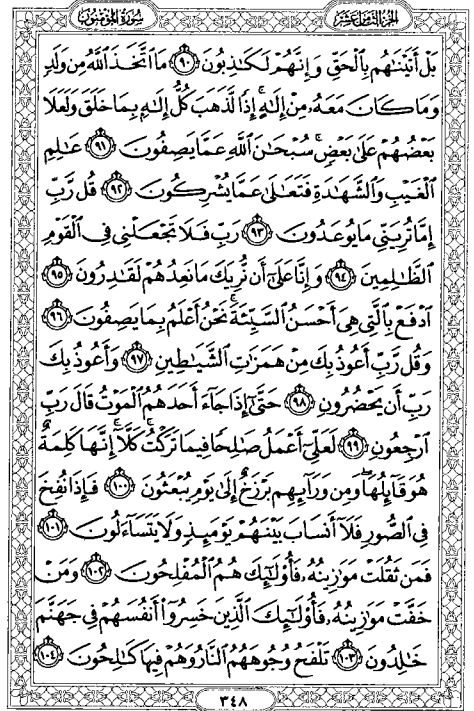 سُورَةُ المُؤْمِنُونَ الجُزْءُ الثَّامِنَ عَشَرَ
بَلْ أَتَيْنَٰهُم بِٱلْحَقِّ وَإِنَّهُمْ لَكَٰذِبُونَ ۝٩٠ مَا ٱتَّخَذَ ٱللَّهُ مِن وَلَدٍ
وَمَا كَانَ مَعَهُۥ مِنْ إِلَٰهٍ ۚ إِذًا لَّذَهَبَ كُلُّ إِلَٰهٍۭ بِمَا خَلَقَ وَلَعَلَا
بَعْضُهُمْ عَلَىٰ بَعْضٍ ۚ سُبْحَٰنَ ٱللَّهِ عَمَّا يَصِفُونَ ۝٩١ عَٰلِمِ
ٱلْغَيْبِ وَٱلشَّهَٰدَةِ فَتَعَٰلَىٰ عَمَّا يُشْرِكُونَ ۝٩٢ قُل رَّبِّ
إِمَّا تُرِيَنِّى مَا يُوعَدُونَ ۝٩٣ رَبِّ فَلَا تَجْعَلْنِى فِى ٱلْقَوْمِ
ٱلظَّٰلِمِينَ ۝٩٤ وَإِنَّا عَلَىٰٓ أَن نُّرِيَكَ مَا نَعِدُهُمْ لَقَٰدِرُونَ ۝٩٥
ٱدْفَعْ بِٱلَّتِى هِىَ أَحْسَنُ ٱلسَّيِّئَةَ ۚ نَحْنُ أَعْلَمُ بِمَا يَصِفُونَ ۝٩٦
وَقُل رَّبِّ أَعُوذُ بِكَ مِنْ هَمَزَٰتِ ٱلشَّيَٰطِينِ ۝٩٧ وَأَعُوذُ بِكَ
رَبِّ أَن يَحْضُرُونِ ۝٩٨ حَتَّىٰٓ إِذَا جَآءَ أَحَدَهُمُ ٱلْمَوْتُ قَالَ رَبِّ
ٱرْجِعُونِ ۝٩٩ لَعَلِّىٓ أَعْمَلُ صَٰلِحًا فِيمَا تَرَكْتُ ۚ كَلَّآ ۚ إِنَّهَا كَلِمَةٌ
هُوَ قَآئِلُهَا ۖ وَمِن وَرَآئِهِم بَرْزَخٌ إِلَىٰ يَوْمِ يُبْعَثُونَ ۝١٠٠ فَإِذَا نُفِخَ
فِى ٱلصُّورِ فَلَآ أَنسَابَ بَيْنَهُمْ يَوْمَئِذٍ وَلَا يَتَسَآءَلُونَ ۝١٠١
فَمَن ثَقُلَتْ مَوَٰزِينُهُۥ فَأُو۟لَٰٓئِكَ هُمُ ٱلْمُفْلِحُونَ ۝١٠٢ وَمَنْ
خَفَّتْ مَوَٰزِينُهُۥ فَأُو۟لَٰٓئِكَ ٱلَّذِينَ خَسِرُوٓا۟ أَنفُسَهُمْ فِى جَهَنَّمَ
خَٰلِدُونَ ۝١٠٣ تَلْفَحُ وُجُوهَهُمُ ٱلنَّارُ وَهُمْ فِيهَا كَٰلِحُونَ ۝١٠٤
٣٤٨